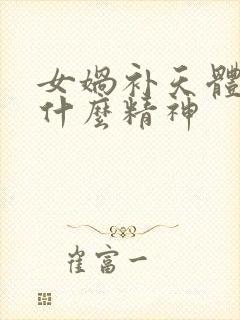 女媧补天體
什麼精神
崔富一